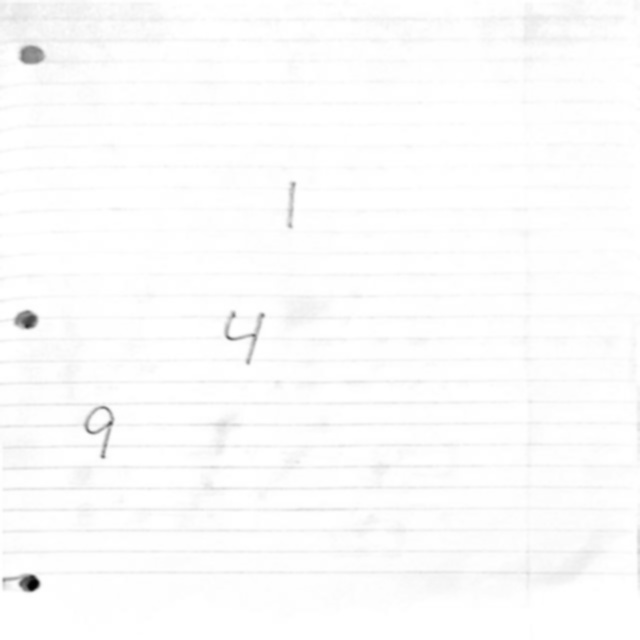 1
4
9